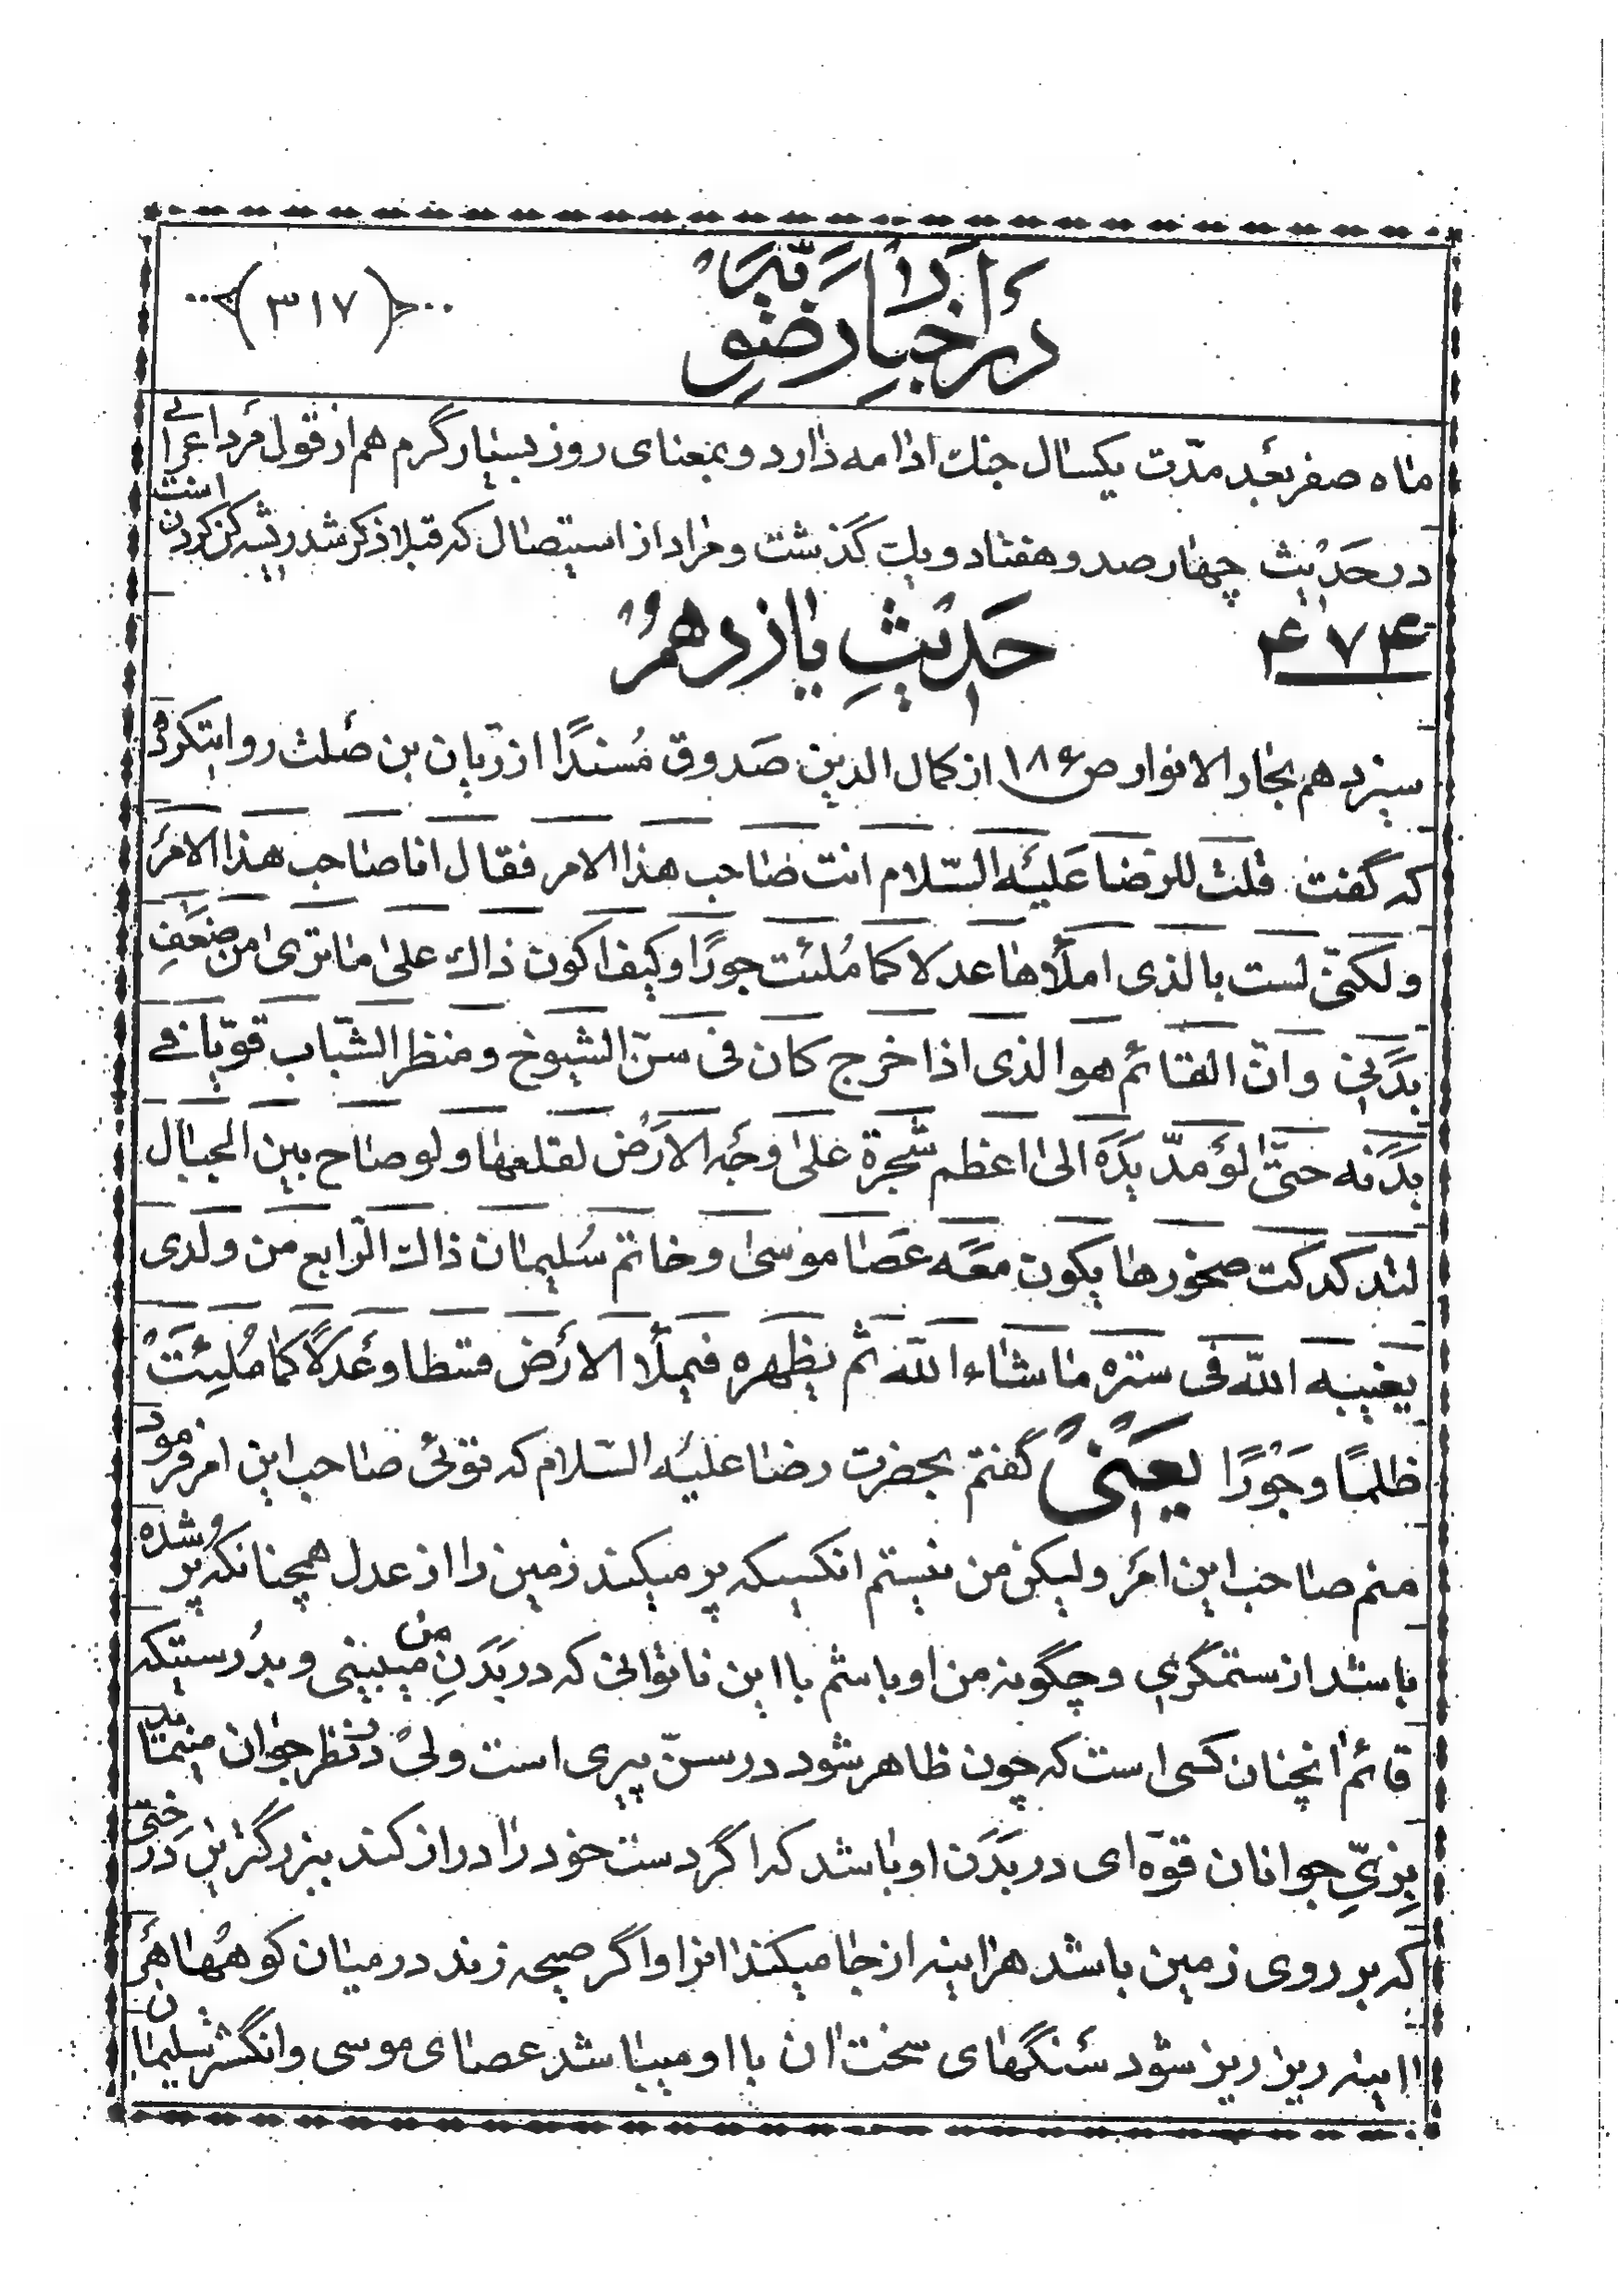 در اخبار رضویّه
(۳۱۷)
ماه صفر بعد مدّت یکسال جنك ادامه دارد و بمعنای روز بسیار گرم هم از قول مرد اعرابی
در حدیث چهارصد و هفتاد و یك گذشت و مراد از استیصال که قبلا ذکر شد ریشه کن کردن است
۴۷۴
حدیثِ یازدهم
سیزدهم بحار الانوار ص ۱۸۶ از کمال الدین صدوق مُسندًا از ریّان بن صلت روایتکرده
که گفت قلت للرضا علیه السّلام انت صاحب هذا الامر فقال انا صاحب هذا الامر
ولکنّی لست بالذی املأها عدلا کما مُلئت جورًا و کیف اکون ذاك علی ما تری من ضعفِ
بدنی وانّ القائم هو الذی اذا خرج کان فی سنّ الشیوخ و منظر الشّباب قویّا فی
بدنه حتّی لو مدّ یده الی اعظم شجرة علی وجه الارض لقلعها ولو صاح بین الجبال
لتدکدکت صخورها یکون معه عصا موسی و خاتم سُلیمان ذاك الرّابع من ولدی
یغیبه اللّه فی ستره ما شاء اللّه ثم یظهره فیملأ الارض قسطا و عدلًا کما مُلِئَت
ظلمًا وجَوْرًا یعنی گفتم بحضرت رضا علیه السّلام که توئی صاحب این امر فرمود
منم صاحب این امر ولیکن من نیستم انکسیکه پر میکند زمین را از عدل همچنانکه پر شده
باشد از ستمگری و چگونه من او باشم با این ناتوانی که در بدنِ من میبینی و بدُرستیکه
قائم انچنان کسی است که چون ظاهر شود در سنّ پیری است ولی در نظر جوان مینماید
بِزیِّ جوانان قوّه ای در بدن او باشد که اگر دست خود را دراز کند ببزرگترین درختی
که بر روی زمین باشد هراینه از جا میکند انرا و اگر صیحه زند در میان کوهها هر
اینه ریز ریز شود سنگهای سخت ان با او میباشد عصای موسی و انگشتر سلیمان